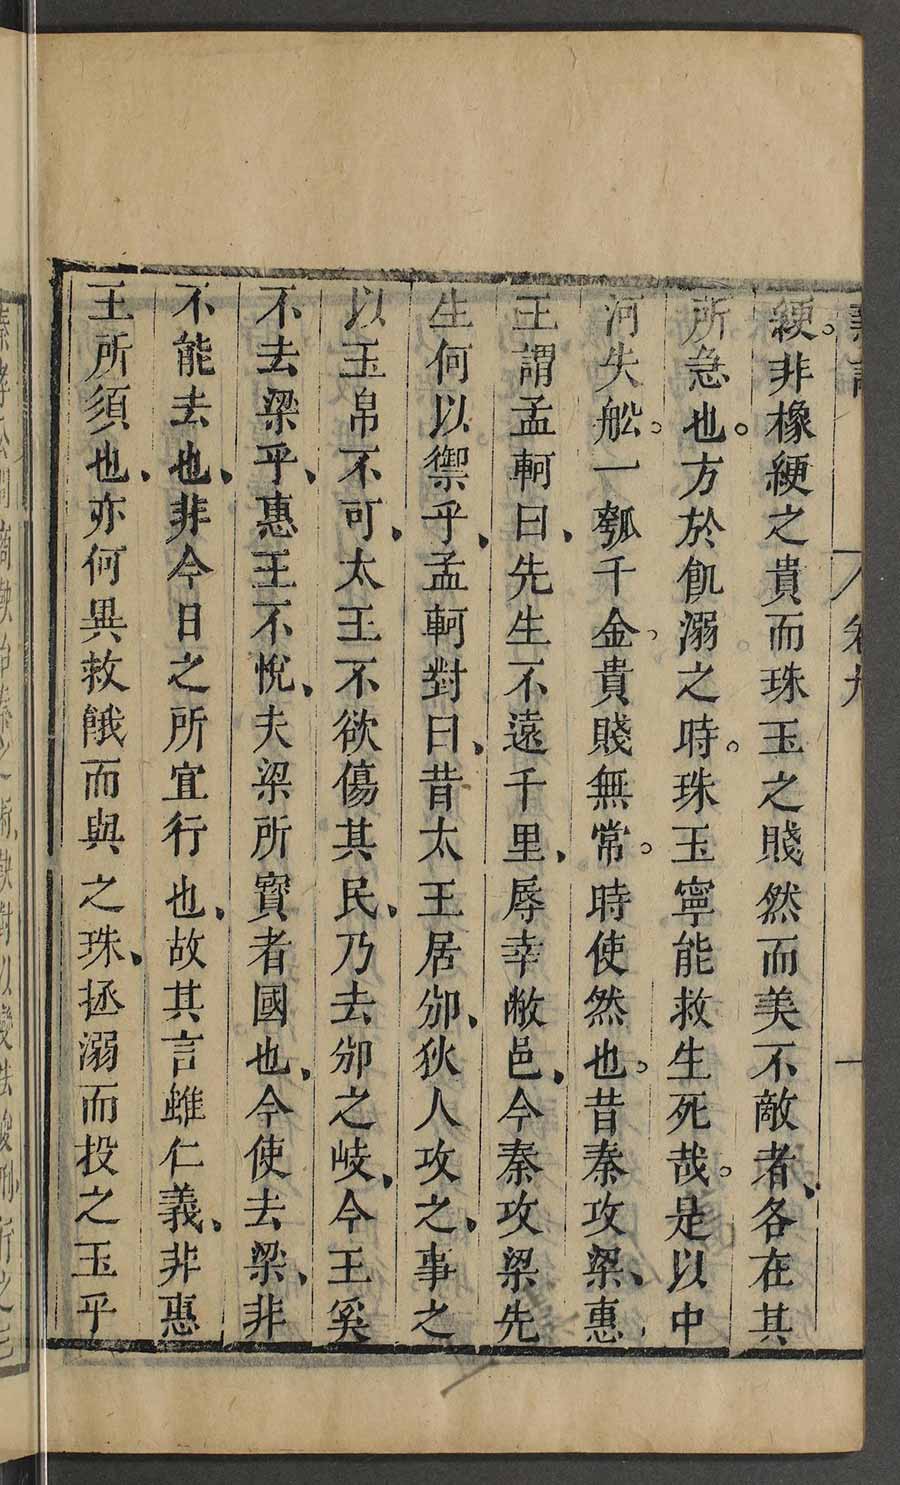 卷九
一
綆非橡綆之貴而珠玉之賤然而美不敵者、各在其
所急也。方於飢溺之時。珠玉寧能救生死哉。是以中
河失舩。一瓠千金。貴賤無常。時使然也。昔秦攻梁、惠
王謂孟軻曰、先生不遠千里、辱幸敝邑、今秦攻梁先
生何以禦乎、孟軻對曰、昔太王居邠、狄人攻之、事之
以玉帛不可、太王不欲傷其民、乃去邠之岐、今王奚
不去梁乎、惠王不悅、夫梁所寳者國也、今使去梁、非
不能去也、非今日之所宜行也、故其言雖仁義、非惠
王所須也、亦何異救餓而與之珠、拯溺而投之玉乎